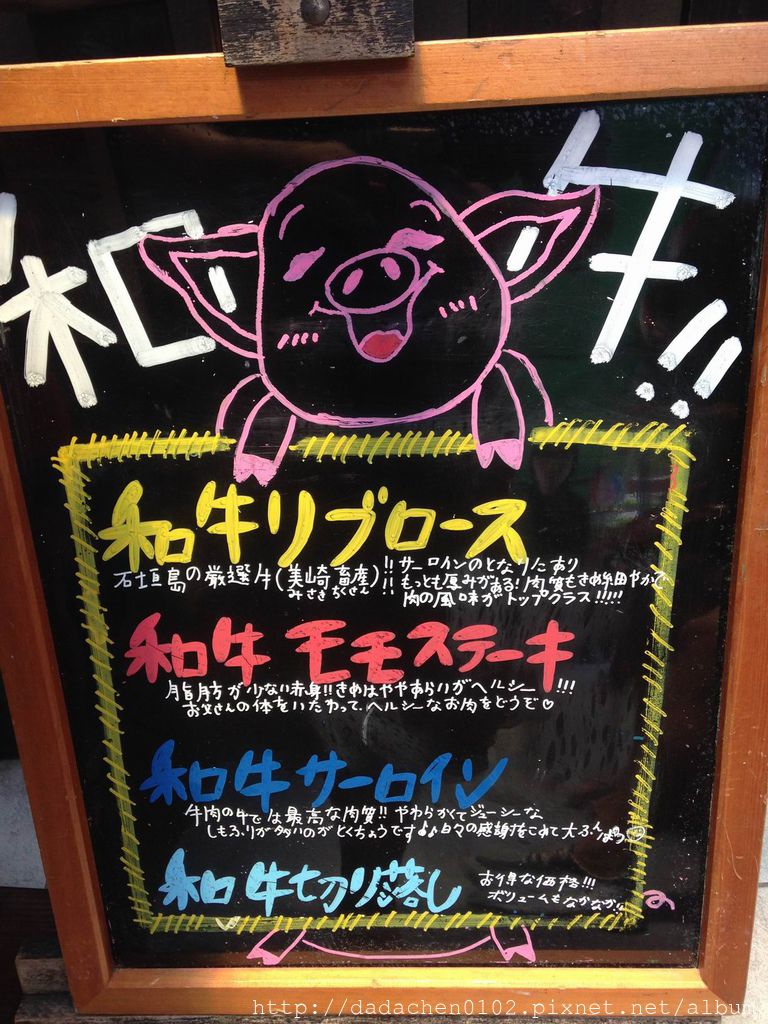 和牛!!
和牛リブロース
石垣島の厳選牛(美崎畜産)!!
みさきちくさん
サーロインのとなりにあり
もっとも厚みがある!肉質もきめ細やかで
肉の風味がトップクラス!!!!!
和牛モモステーキ
脂肪が少ない赤身!!きめはややあらいがヘルシー!!!
お父さんの体をいたわって、ヘルシーなお肉をどうぞ♡
和牛サーロイン
牛肉の中では最高な肉質!!やわらかくてジューシーな
しもふりが多いのがとくちょうです♪♪日々の感謝をこめて大ふんぱつ
和牛切り落し
お得な価格!!!
ボリュームもなかなか!!
http://dadachen0102.pixnet.net/album